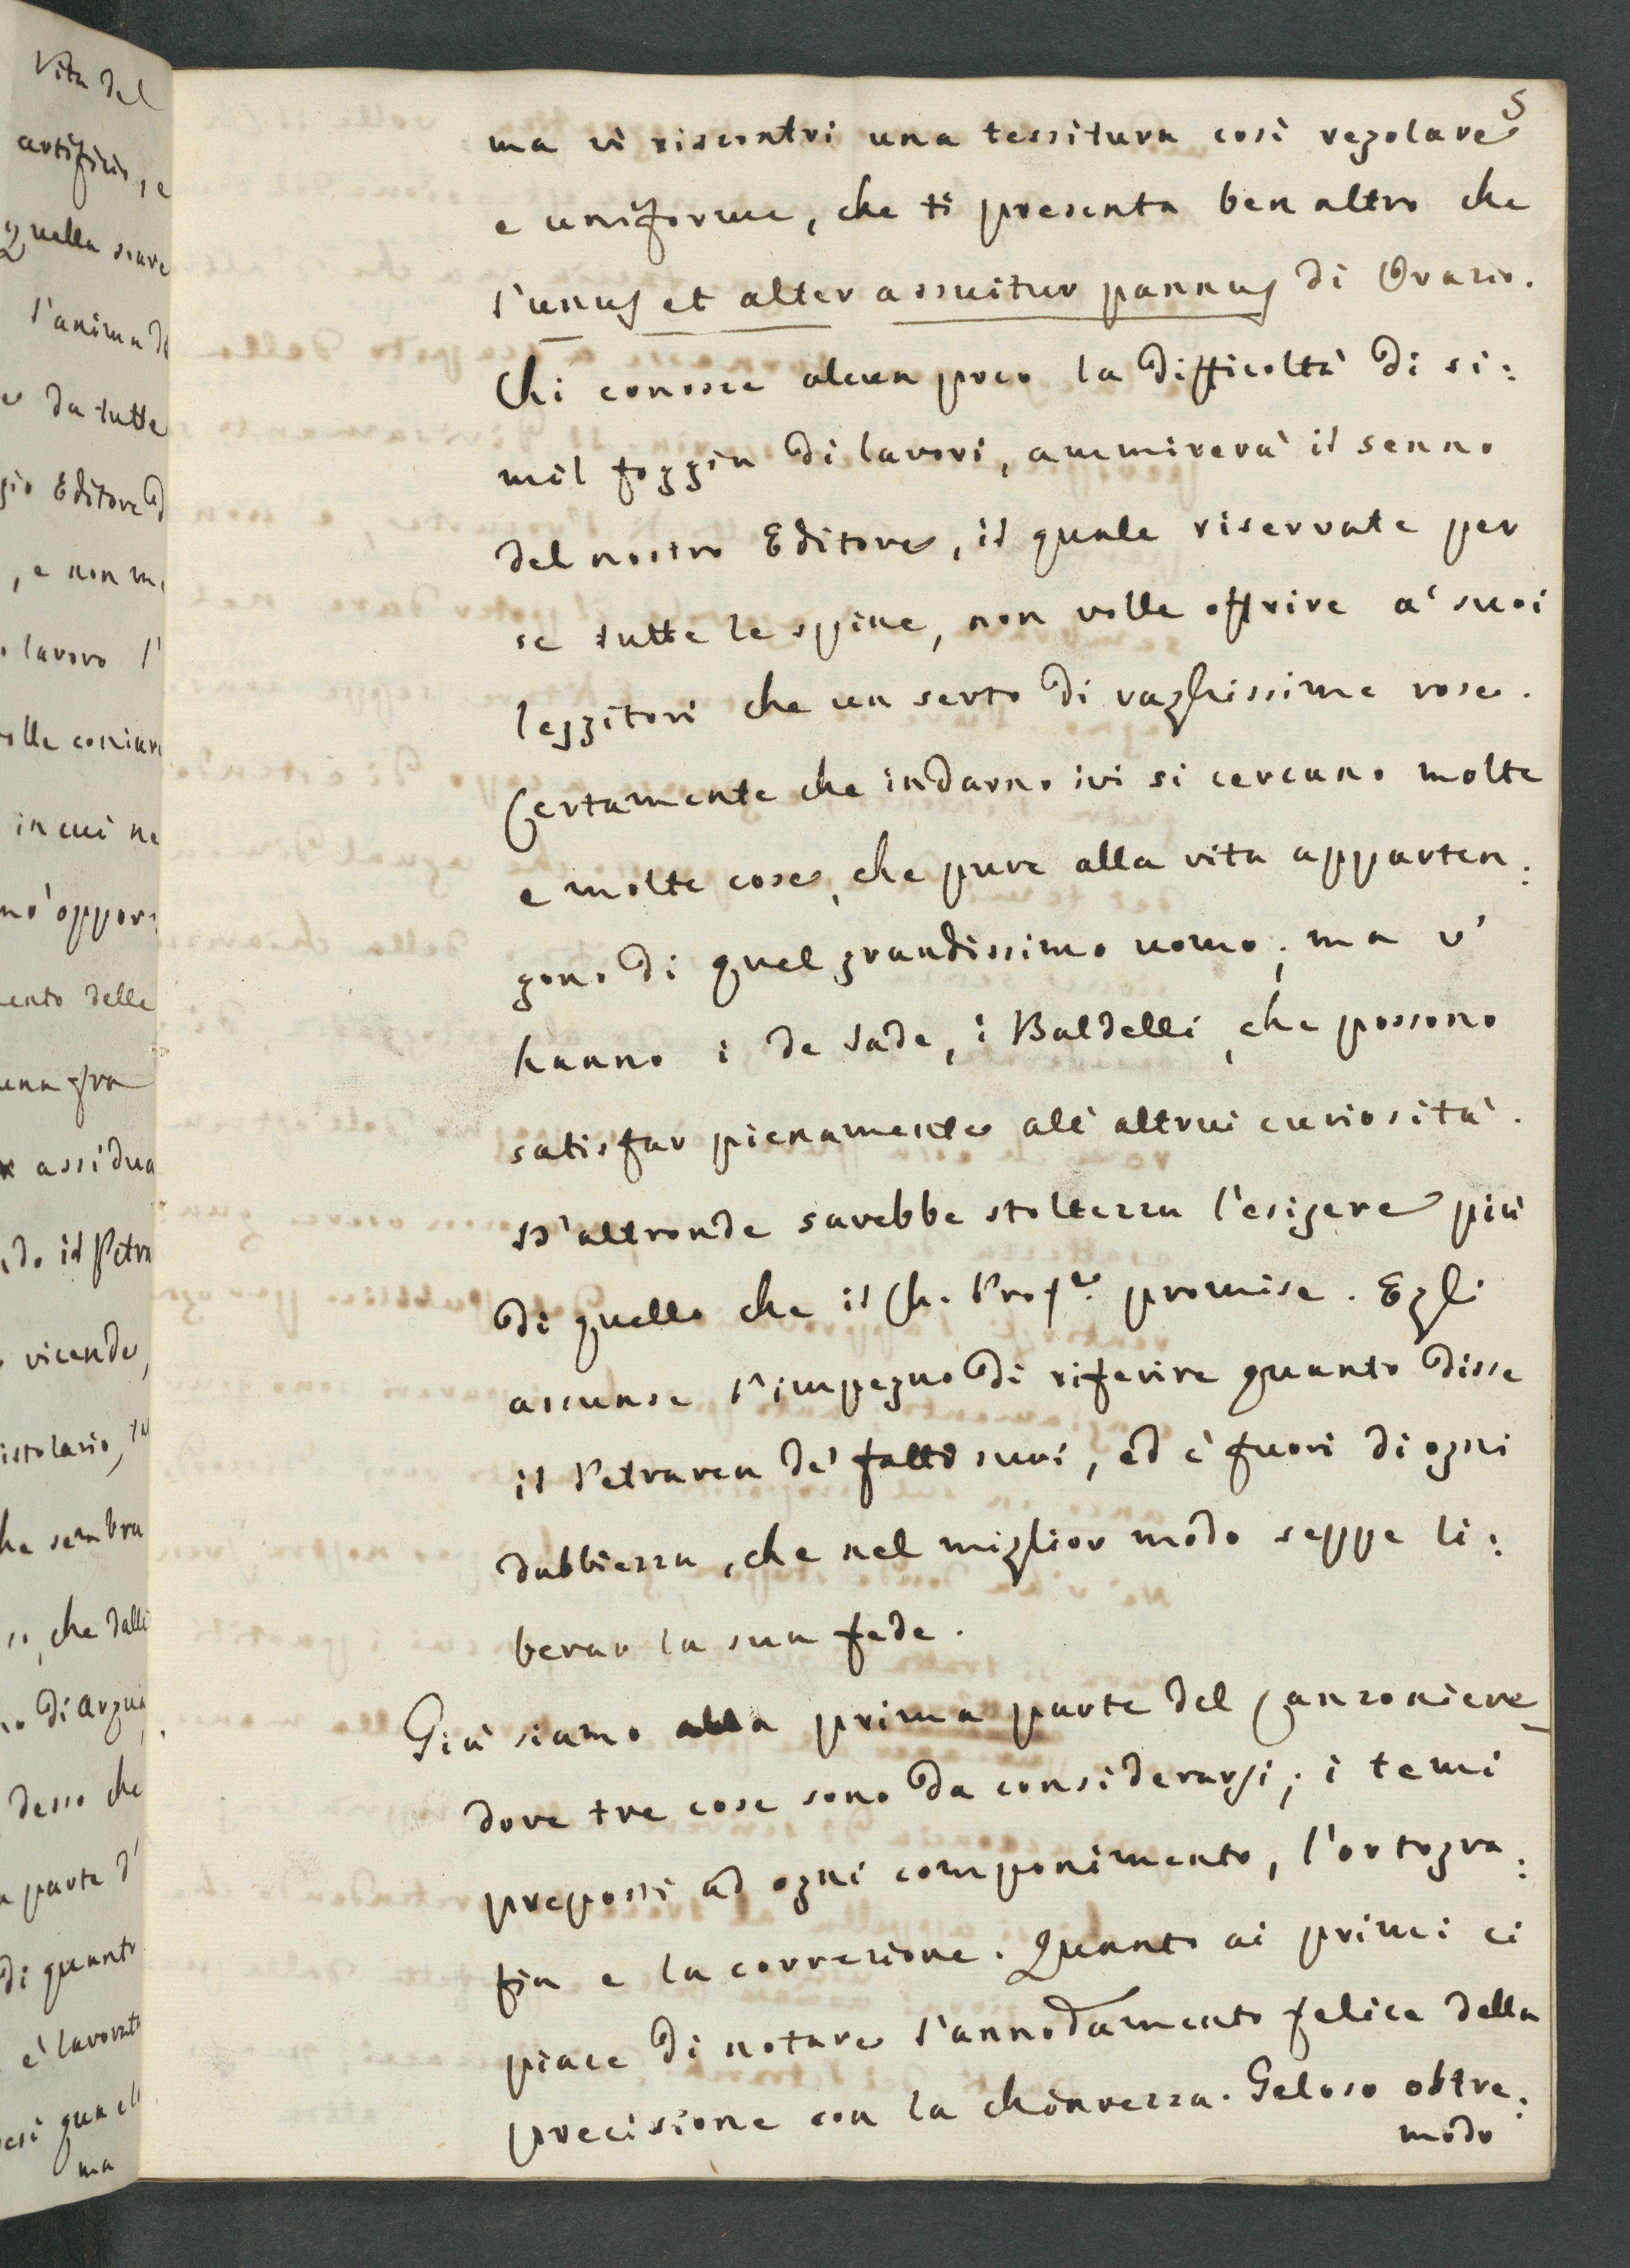 Vita del
artificio, e
quella soave
l'anima d
da tutte
gio Editore d
, e non m
lavoro l'
olle coniar
in cui ne
mo' oppor:
ento delle
una gra
assidua
do il Petra
vicende,
istolario, tu
he sembra
, che dalli
di Arquà
desso che
parte d'
di quanto
è lavorato
esì quell
ma
5
ma vi riscontri una tessitura così regolare
e uniforme, che ti presenta ben altro che
l'unus et alter assuitur pannus di Orazio.
Chi conosce alcun poco la difficoltà di si:
mil foggia di lavori, ammirerà il senno
del nostro Editore, il quale riservate per
se tutte le spine, non volle offrire a' suoi
leggitori che un serto di vaghissime rose.
Certamente che indarno ivi si cercano molte
e molte cose, che pure alla vita apparten:
gono di quel grandissimo uomo; ma v'
hanno i de Sade, i Baldelli, che possono
satisfar pienamente all' altrui curiosità.
D'altronde sarebbe stoltezza l'esigere più
di quello che il Ch. Profe. promise. Egli
assunse l'impegno di riferire quanto disse
il Petrarca de' fatti suoi, ed è fuori di ogni
dubbiezza, che nel miglior modo seppe li:
berar la sua fede.
Già siamo alla prima parte del Canzoniere
dove tre cose sono da considerarsi; i temi
preposti ad ogni componimento, l'ortogra:
fia e la correzione. Quanto ai primi ci
piace di notare l'annodamento felice della
precisione con la chiarezza. Geloso oltre:
modo